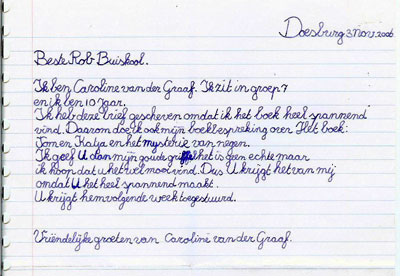 Doesburg 3 nov. 2006
Beste Rob Buiskool.
Ik ben Caroline van der Graaf. Ik zit in groep 7
en ik ben 10 Jaar.
Ik heb deze brief gescheven omdat ik het boek heel spannend
vind. Daarom doe ik ook mijn boekbespreking over Het boek:
Tom en Katja en het mysterie van negen.
Ik geef U dan mijn goude griffel het is geen echte maar
ik hoop dat u het wel mooi vind. Dus U krijgt het van mij
omdat U het heel spannend maakt.
U krijgt hem volgende week toegestuurd.
Vriendelijke groeten van Caroline van der Graaf.